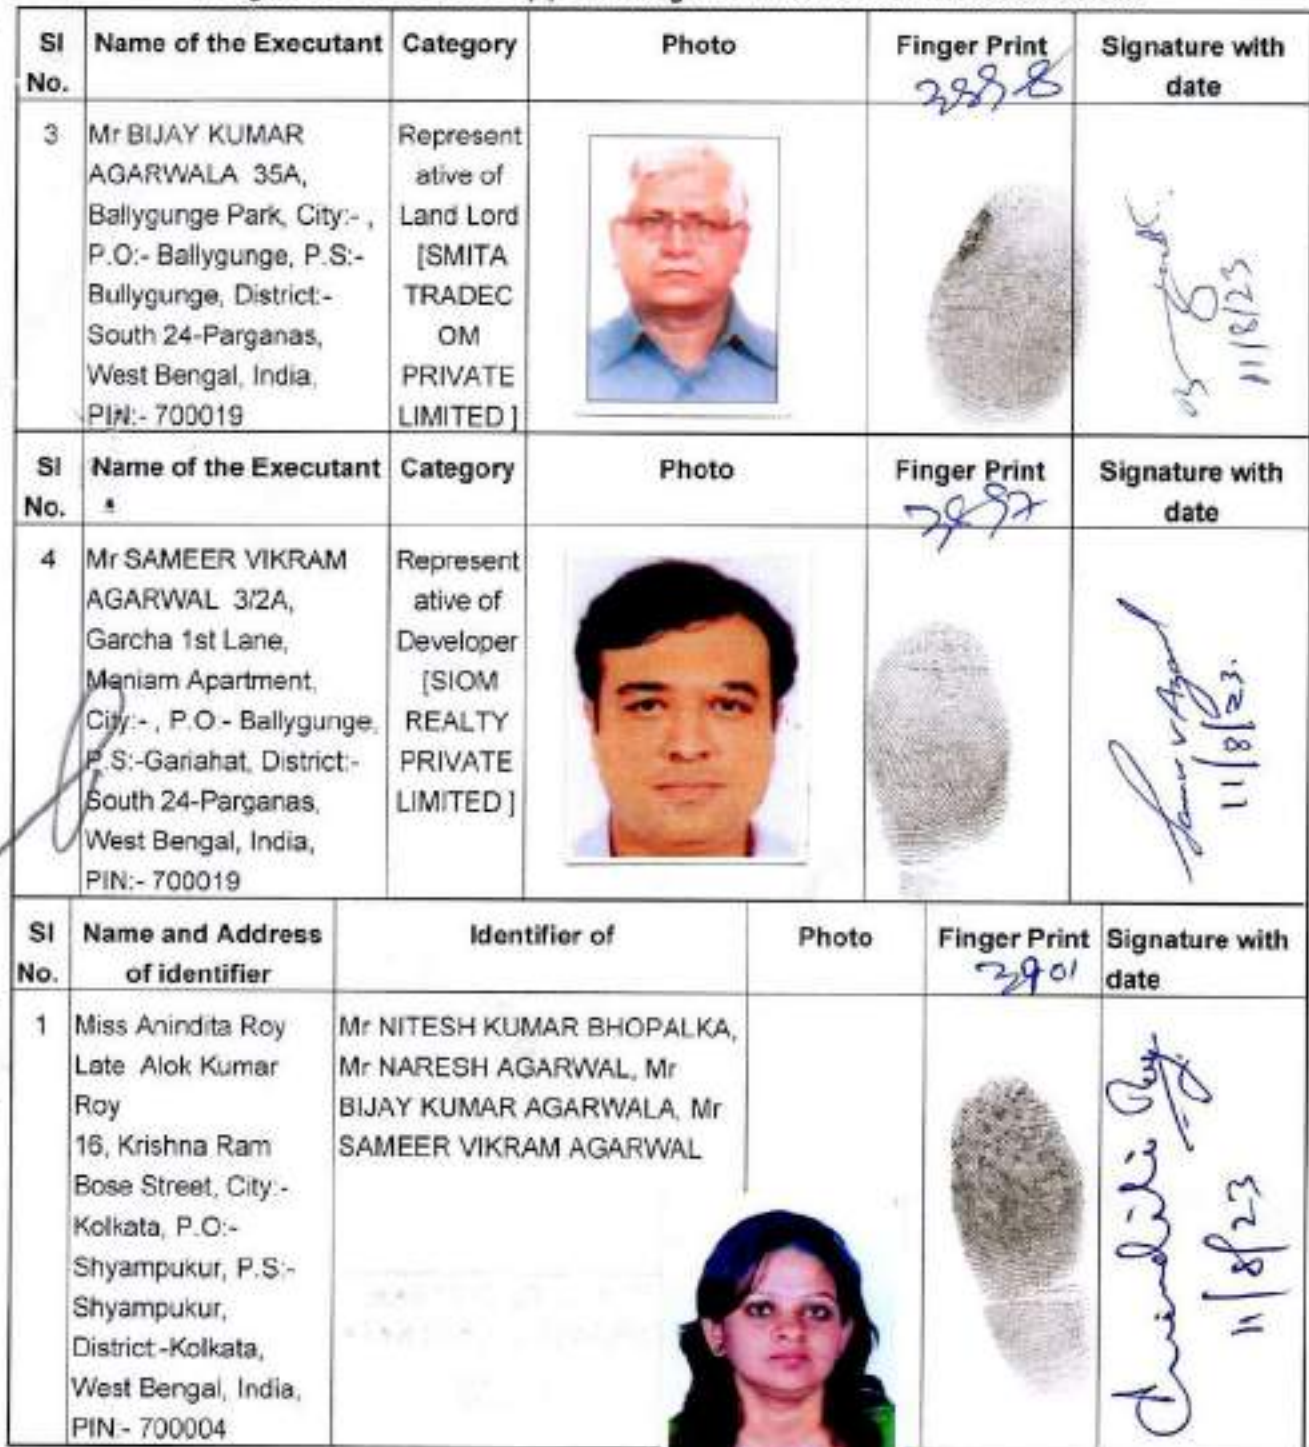 SI No. Name of the Executant Category Photo Finger Print Signature with date
3 Mr BIJAY KUMAR
AGARWALA 35A,
Ballygunge Park, City:- ,
P.O:- Ballygunge, P.S:-
Bullygunge, District:-
South 24-Parganas,
West Bengal, India,
PIN:- 700019
Represent
ative of
Land Lord
[SMITA
TRADEC
OM
PRIVATE
LIMITED ]
11/8/23
SI No. Name of the Executant Category Photo Finger Print Signature with date
4 Mr SAMEER VIKRAM
AGARWAL 3/2A,
Garcha 1st Lane,
Meniam Apartment,
City:- , P.O:- Ballygunge,
P.S:-Gariahat, District:-
South 24-Parganas,
West Bengal, India,
PIN:- 700019
Represent
ative of
Developer
[SIOM
REALTY
PRIVATE
LIMITED ]
11/8/23.
SI No. Name and Address of identifier Identifier of Photo Finger Print Signature with date
3901
1 Miss Anindita Roy
Late Alok Kumar
Roy
16, Krishna Ram
Bose Street, City:-
Kolkata, P.O:-
Shyampukur, P.S:-
Shyampukur,
District:-Kolkata,
West Bengal, India,
PIN:- 700004
Mr NITESH KUMAR BHOPALKA,
Mr NARESH AGARWAL, Mr
BIJAY KUMAR AGARWALA, Mr
SAMEER VIKRAM AGARWAL
Anindita Roy
11/8/23